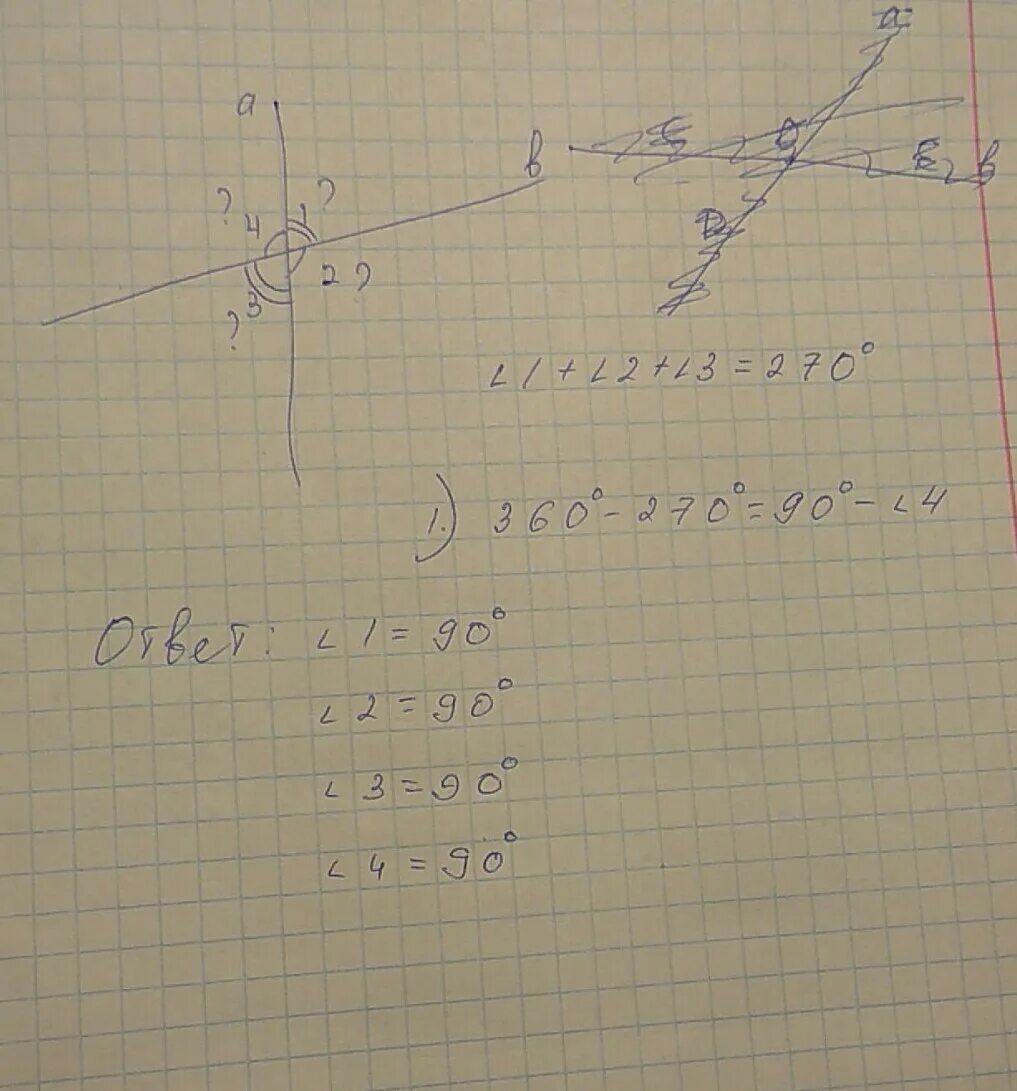 a
в
? 4 1 ?
2 ?
3
?
a
в
∠1+∠2+∠3=270°
1.) 360°-270°=90°-∠4
Ответ: ∠1=90°
∠2=90°
∠3=90°
∠4=90°